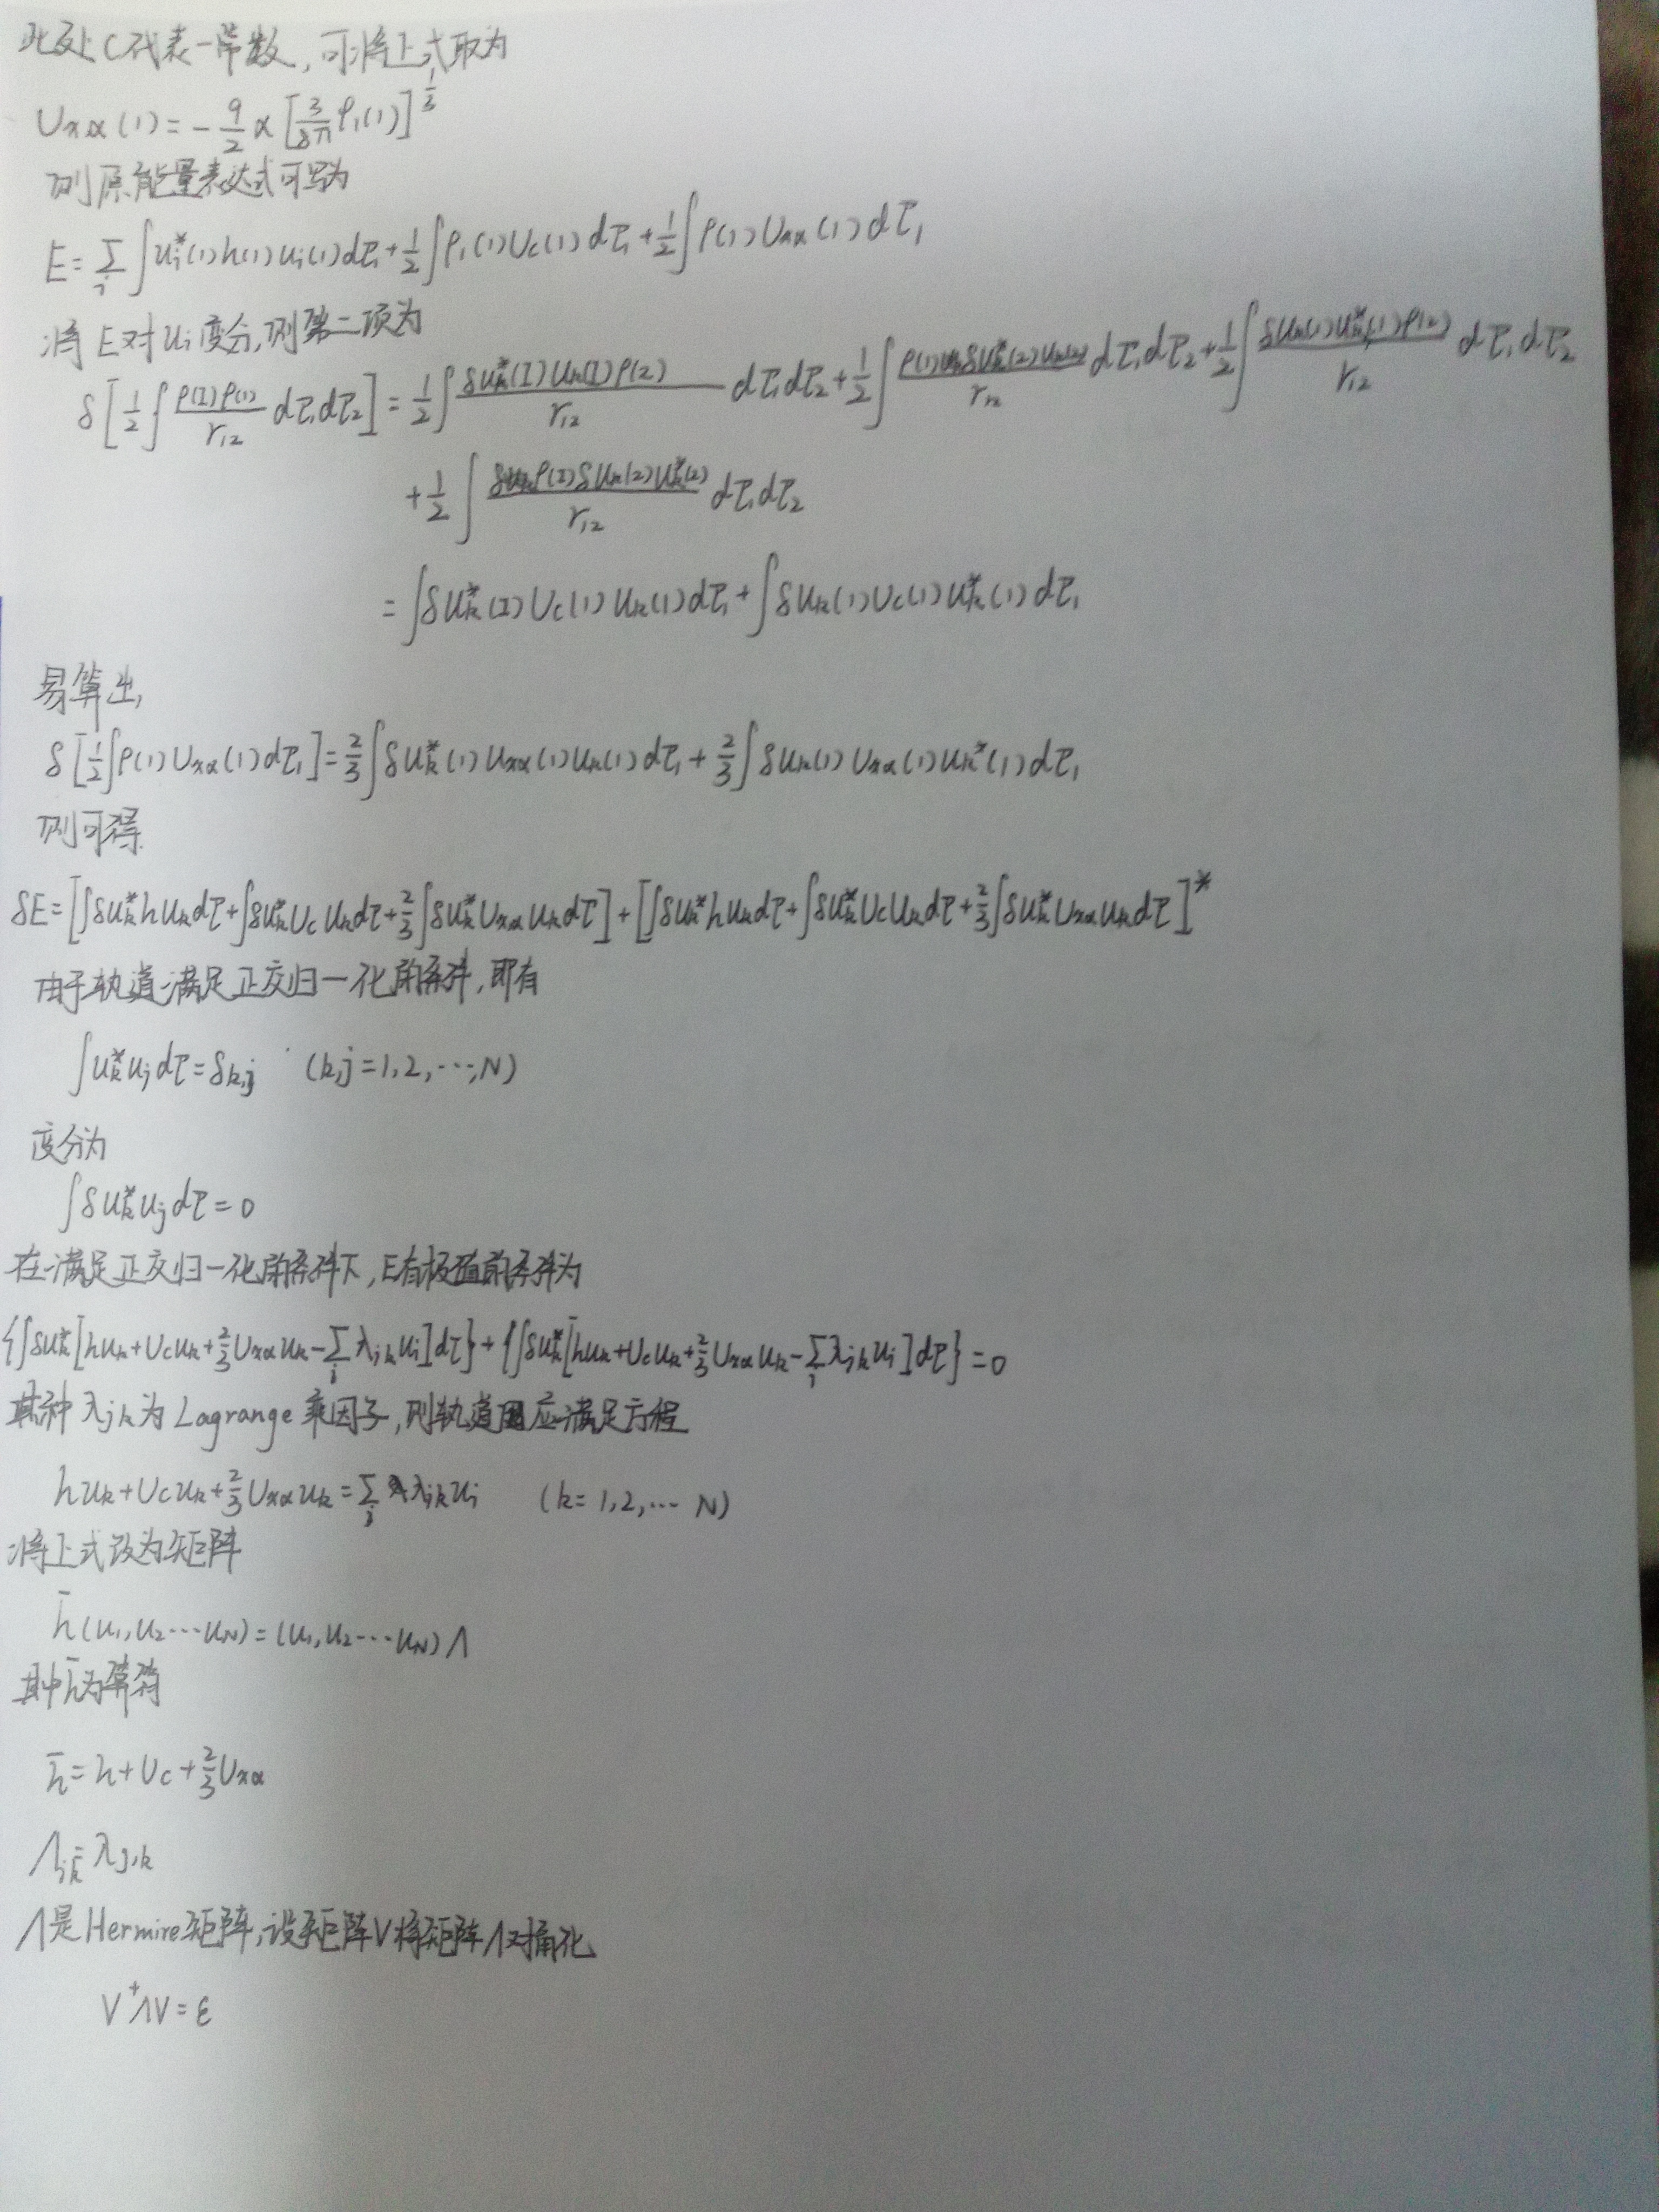 此处C代表一常数,可将上式取为
Uxα(1)=-9/2 α[3/8π ρ1(1)]^{1/3}
则原能量表达式可写为
E=∑i∫ui*(1)h(1)ui(1)dτ1+1/2∫ρ1(1)Uc(1)dτ1+1/2∫ρ(1)Uxα(1)dτ1
将E对ui变分,则第二项为
δ[1/2∫ρ(1)ρ(1)/r12 dτ1dτ2]=1/2∫δuk*(1)uk(1)ρ(2)/r12 dτ1dτ2+1/2∫ρ(1)δuk*(2)uk(2)/r12 dτ1dτ2+1/2∫δuk(1)uk*(1)ρ(2)/r12 dτ1dτ2
+1/2∫ρ(1)δuk(2)uk*(2)/r12 dτ1dτ2
=∫δuk*(1)Uc(1)uk(1)dτ1+∫δuk(1)Uc(1)uk*(1)dτ1
易算出,
δ[1/2∫ρ(1)Uxα(1)dτ1]=2/3∫δuk*(1)Uxα(1)uk(1)dτ1+2/3∫δuk(1)Uxα(1)uk*(1)dτ1
则可得
δE=[∫δuk*hukdτ+∫δuk*Ucukdτ+2/3∫δuk*Uxαukdτ]+[∫δuk*hukdτ+∫δuk*Ucukdτ+2/3∫δuk*Uxαukdτ]*
由于轨道满足正交归一化的条件,即有
∫uk*ujdτ=δk,j (k,j=1,2,…,N)
变分为
∫δuk*ujdτ=0
在满足正交归一化的条件下,E有极值的条件为
{∫δuk*[huk+Ucuk+2/3Uxαuk-∑jλjkuj]dτ}+{∫δuk*[huk+Ucuk+2/3Uxαuk-∑jλjkuj]dτ}=0
其种λjk为Lagrange乘因子,则轨道应满足方程
huk+Ucuk+2/3Uxαuk=∑jλjkuj (k=1,2,… N)
将上式改为矩阵
h̄(u1,u2…uN)=(u1,u2…uN)Λ
其中h̄为算符
h̄=h+Uc+2/3Uxα
Λjk=λj,k
Λ是Hermire矩阵,设矩阵V将矩阵Λ对角化
V⁺ΛV=ε